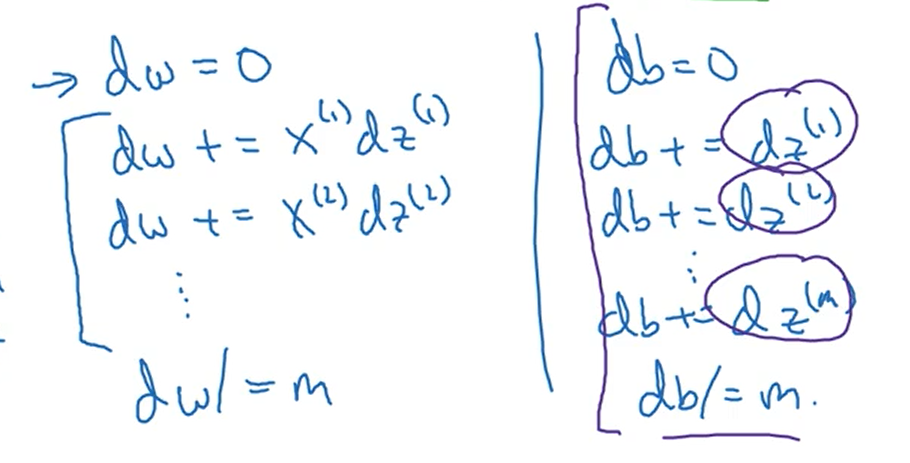 → dw = 0
dw += x⁽¹⁾dz⁽¹⁾
dw += x⁽²⁾dz⁽²⁾
⋮
dw/=m
db=0
db+= dz⁽¹⁾
db+= dz⁽²⁾
⋮
db+= dz⁽ᵐ⁾
db/=m.